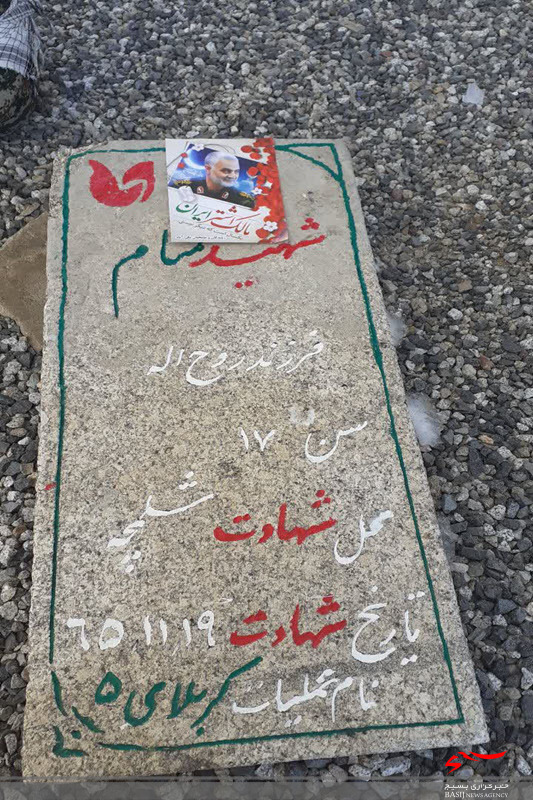 مالک اشتر ایران
شهید گمنام
فرزند روح اله
سن ۱۷
محل شهادت شلمچه
تاریخ شهادت ۶۵،۱۱،۱۹
نام عملیات کربلای ۵
خبرگزاری بسیج
BASIJ NEWS AGENCY